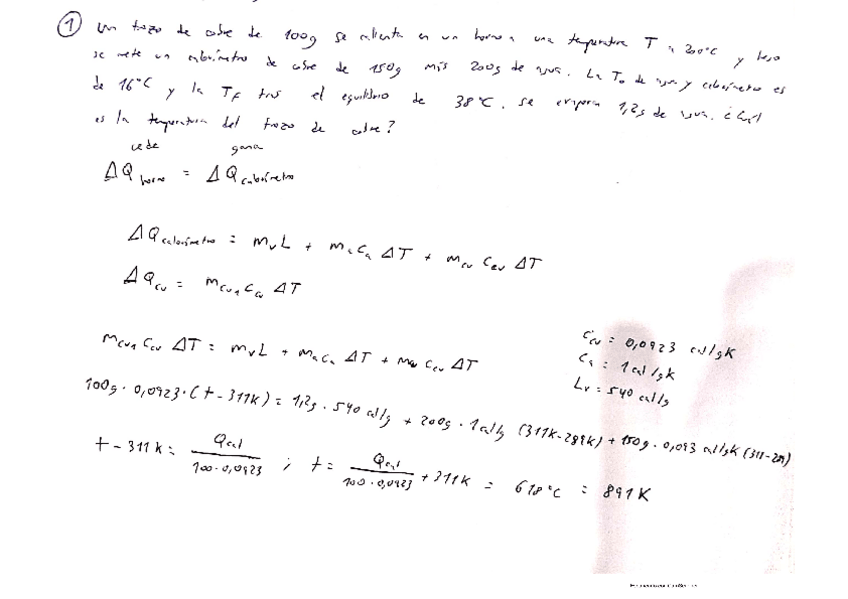 1 Un trozo de cobre de 100g se calienta en un horno a una temperatura T y luego
se mete un calorímetro de cobre de 150g más 200g de agua. La T₀ de agua y calorímetro es
de 16°C y la T_F tras el equilibrio de 38°C, se evapora 1,2g de agua. ¿Cuál
es la temperatura del trozo de cobre?
cede gana
ΔQ horno = ΔQ calorímetro
ΔQ calorímetro = m_v L + m_a c_a ΔT + m_cu c_cu ΔT
ΔQ_cu = m_cu1 c_cu ΔT
c_cu = 0,0923 cal/gK
m_cu1 c_cu ΔT = m_v L + m_a c_a ΔT + m_cu c_cu ΔT
c_a = 1 cal/gK
L_v = 540 cal/g
100g · 0,0923 · (t - 311K) = 1,2g · 540 cal/g + 200g · 1 cal/g (311K-289K) + 150g · 0,093 cal/gK (311-289)
t - 311K = Q_cal / 100 · 0,0923 ; t = Q_cal / 100 · 0,0923 + 311K = 618°C = 891K